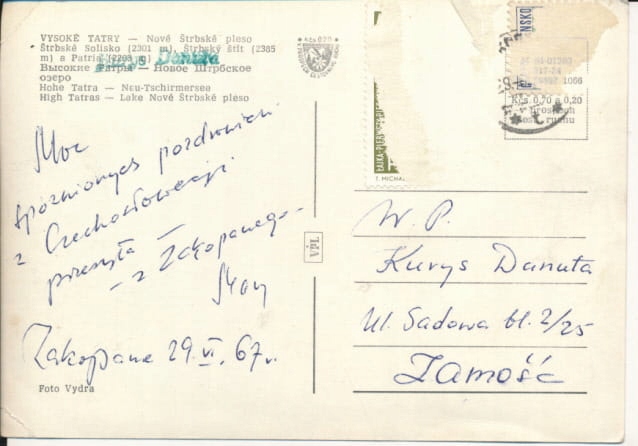 VYSOKÉ TATRY — Nové Štrbské pleso
Štrbské Solisko (2301 m), Štrbský štít (2385
m) a Patria (2203 m)
Высокие Татры — Новое Штрбское
озеро
Hohe Tatra — Neu-Tschirmersee
High Tatras — Lake Nové Štrbské pleso
Moc
spóźnionych pozdrowień
z Czechosłowacji
przesyła —
— z Zakopanego —
Zakopane 29 VI. 67 r.
Foto Vydra
VPL
ŁAJKA-PIERW
T. MICHAL
NSKO
1066
Kčs 0,70 a 0,20
W. P.
Kurys Danuta
Ul. Sadowa bl. 2/25
Zamość